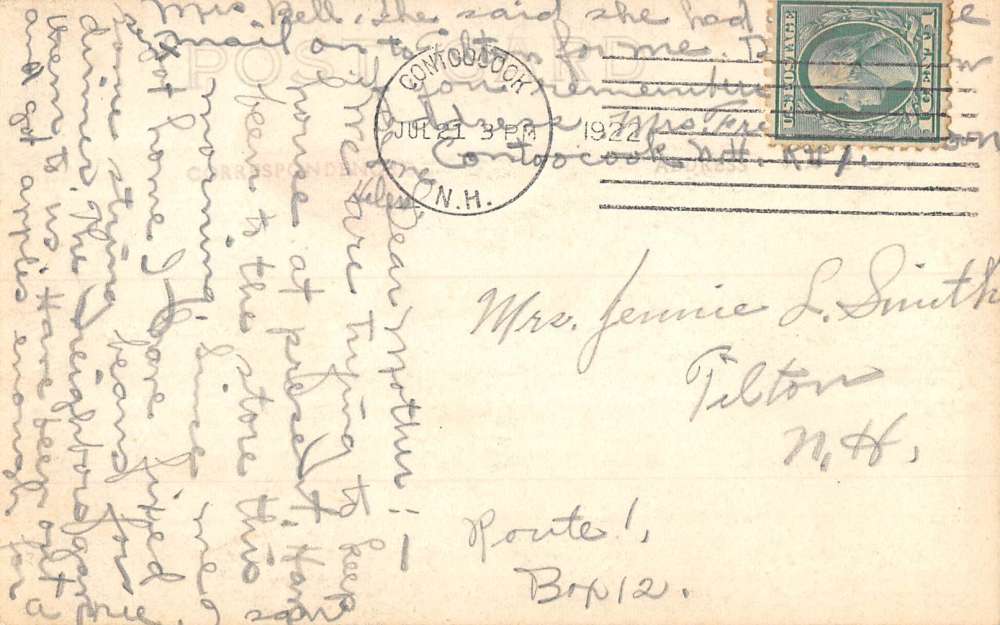 POST CARD
CORRESPONDENCE
ADDRESS
CONTOOCOOK
JUL 21 3 PM
1922
N.H.
U.S. POSTAGE
1 CENT 1
Mrs. Jennie L. Smith
Tilton
N.H.
Route 1,
Box 12.
Dear Mother:—
We are trying to keep
house at present. Have
been to the store this
morning. Since we
got home I have fixed
some string beans for
dinner. The neighbors
to us. Have been out
and got apples enough for
Mrs. Bell, she said she had
mail on to Tilton for me.
you remember
address Mrs.
Contoocook N.H.
Helen